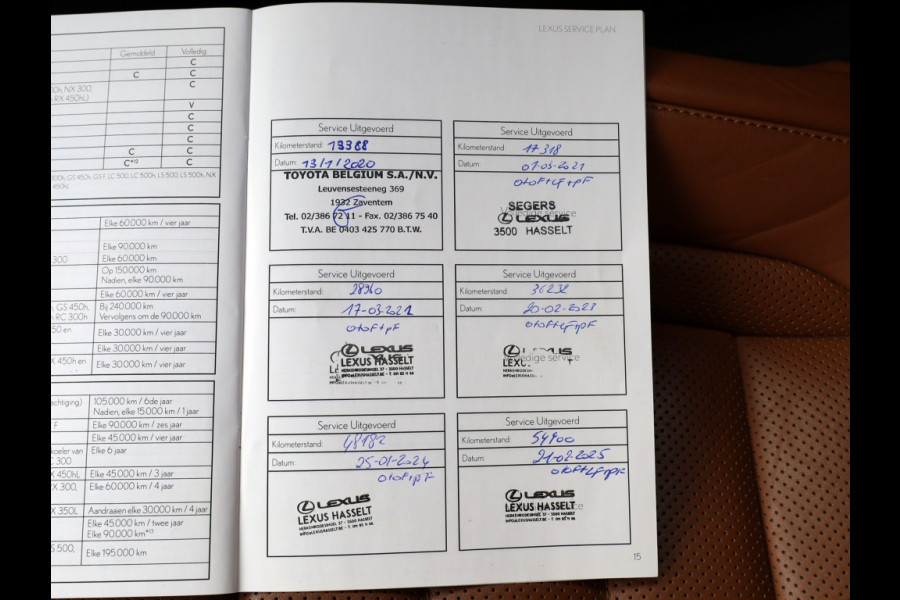 Gemiddeld Volledig
C
C C
0h, NX 300, C
RX 450hL)
V
C
C
C
C C
C*¹⁰ C
300h, GS 450h, GS F, LC 500, LC 500h, LS 500, LS 500h, NX
450hL
Elke 60.000 km / vier jaar
Elke 90.000 km
300 Elke 60.000 km
Op 150.000 km
Nadien, elke 90.000 km
Elke 60.000 km / vier jaar
, GS 450h, Bij 240.000 km
RC 300h Vervolgens om de 90.000 km
50 en Elke 30.000 km / vier jaar
Elke 30.000 km / vier jaar
X 450h en Elke 30.000 km / vier jaar
achtiging) 105.000 km / 6de jaar
Nadien, elke 15.000 km / 1 jaar
F Elke 90.000 km / zes jaar
Elke 45.000 km / vier jaar
koeler van Elke 6 jaar
C 300
X 450hL Elke 45.000 km / 3 jaar
X 300, Elke 60.000 km / 4 jaar
X 350L Aandraaien elke 30.000 km / 4 jaar
Elke 45.000 km / twee jaar
Elke 90.000 km*¹³
S 500, Elke 195.000 km
LEXUS SERVICE PLAN
Service Uitgevoerd
Kilometerstand: 13368
Datum: 13/1/2020
TOYOTA BELGIUM S.A./N.V.
Leuvensesteeneg 369
1932 Zaventem
Tel. 02/386 72 11 - Fax. 02/386 75 40
T.V.A. BE 0403 425 770 B.T.W.
Service Uitgevoerd
Kilometerstand: 17318
Datum: 01-03-2021
otof+lf+pf
Volledige service
SEGERS
LEXUS
3500 HASSELT
Service Uitgevoerd
Kilometerstand: 28960
Datum: 17-03-2021
otof+pf
LEXUS
LEXUS HASSELT
Service Uitgevoerd
Kilometerstand: 36232
Datum: 20-02-2023
otof+lf+pf
Volledige service
Service Uitgevoerd
Kilometerstand: 48182
Datum: 25-01-2024
otof+pf
LEXUS
LEXUS HASSELT
Service Uitgevoerd
Kilometerstand: 54900
Datum: 21-02-2025
otof+lf+pf
LEXUS
LEXUS HASSELT
15